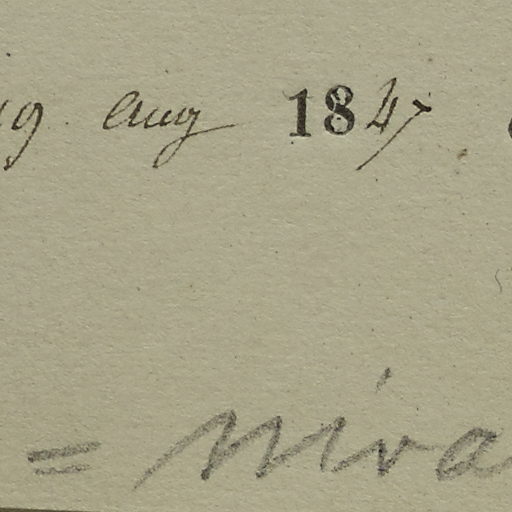 19 Aug 1847
= niva